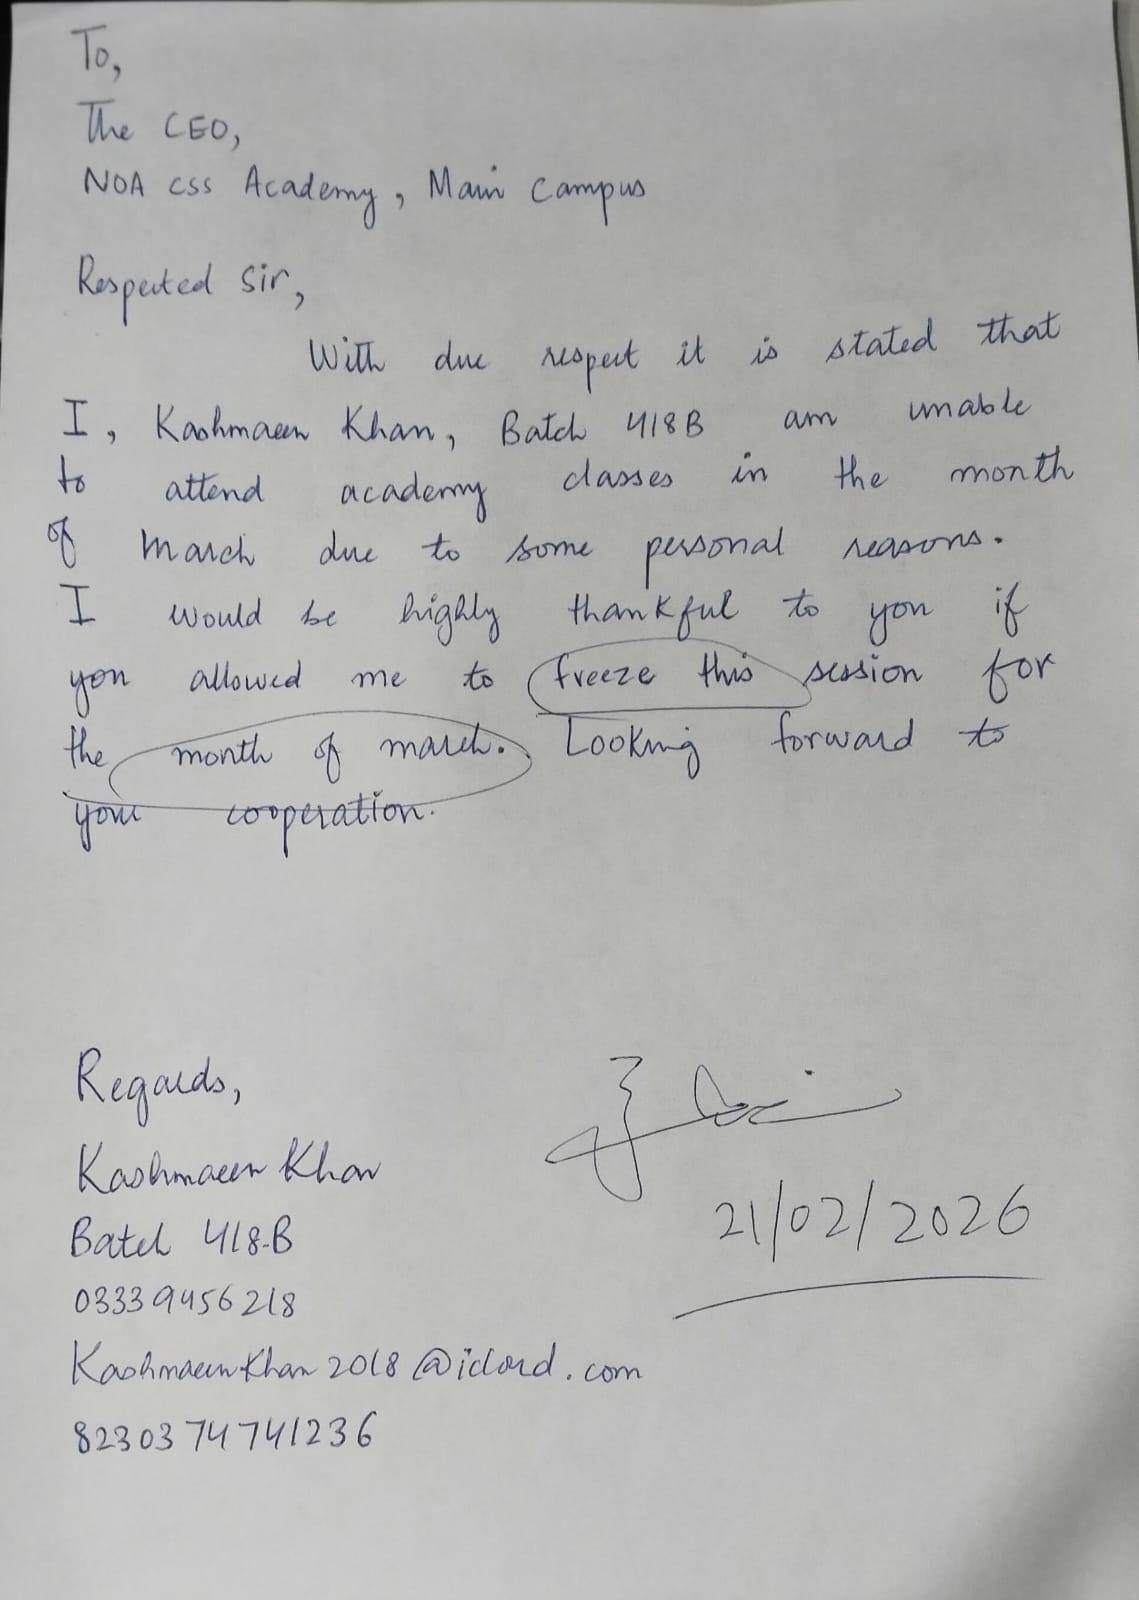 To,
The CEO,
NOA CSS Academy, Main Campus
Respected Sir,
With due respect it is stated that
I, Kashmaeen Khan, Batch 418B am unable
to attend academy classes in the month
of March due to some personal reasons.
I would be highly thankful to you if
you allowed me to freeze this session for
the month of march. Looking forward to
your cooperation.
Regards,
Kashmaeen Khan
Batch 418-B
03339456218
KashmaeenKhan2018@icloud.com
8230374741236
21/02/2026